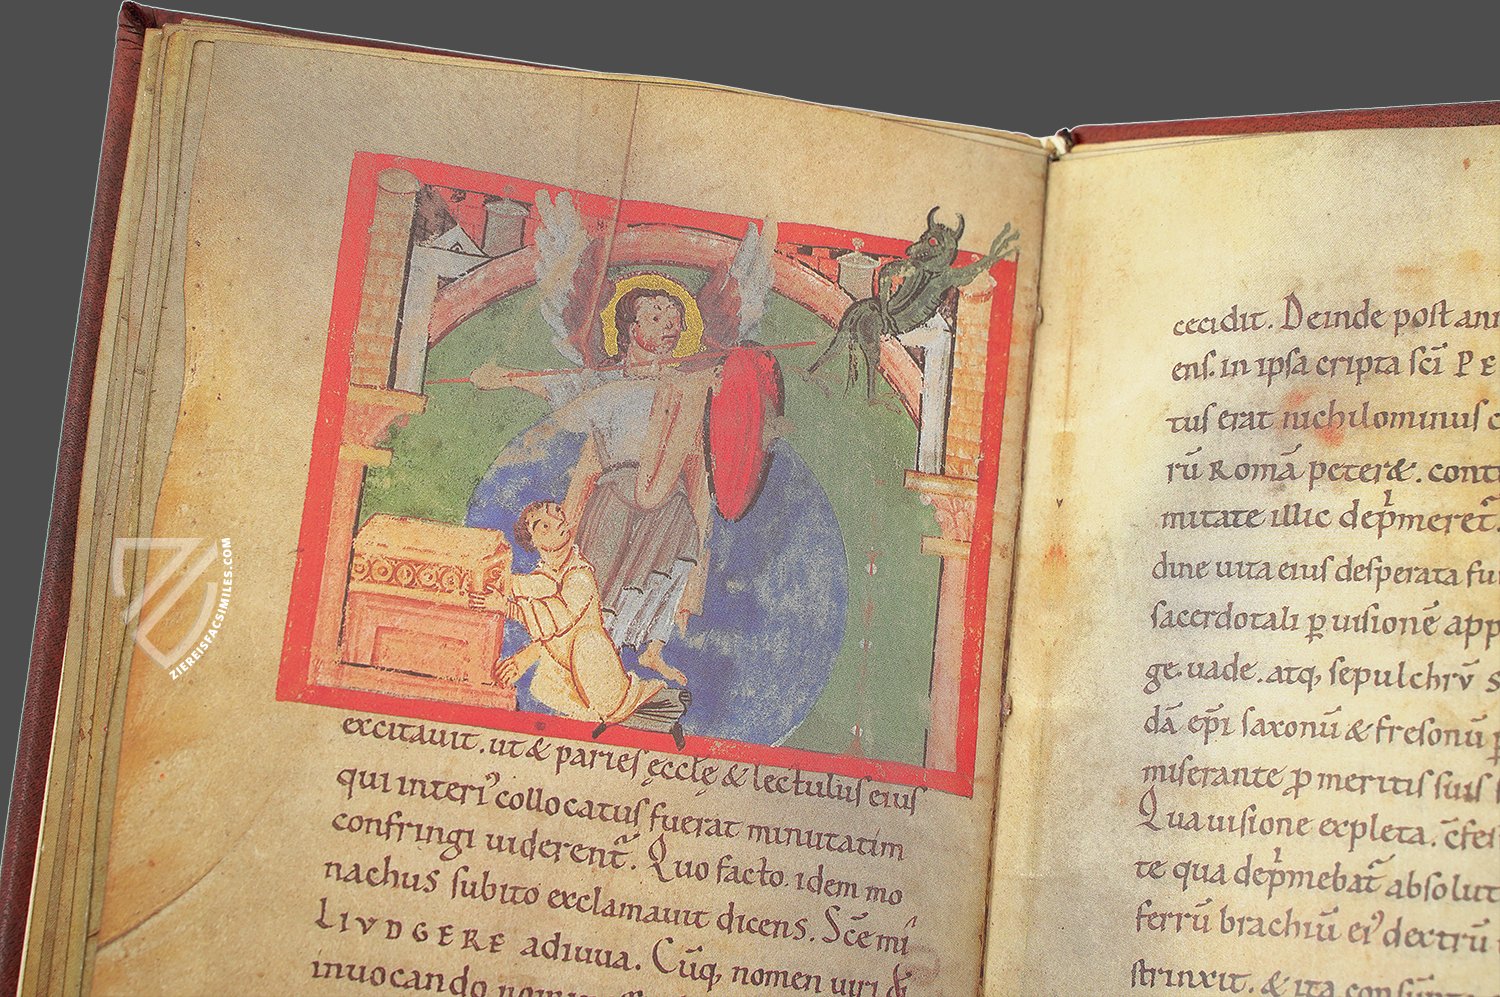 excitauit. ut & paries ęcclę & lectulus eius
qui interi᾽ collocatus fuerat minutatim
confringi uiderent᷑. Quo facto. idem mo
nachus subito exclamauit dicens. Sc̄e mi
LIVDGERE adiuua. Cūq, nomen uiri
inuocando
cecidit. Deinde post ann
ens. in ipsa cripta sc̄i PE
tus erat nichilominus c
rū Romā peter&. cont
mitate illic dep̍meret᷑.
dine uita eius desperata fu
sacerdotali ꝑ uisionē app
ge. uade. atq, sepulchrv S
dā ep̄i saxonū & fresonū
miserante ꝓ meritis suis
Qua uisione expleta. c̄fes
te qua dep̍mebat᷑ absolut
ferrū brachiū ei᾽ dextrū
strinxit. & ita
ZIEREISFACSIMILES.COM